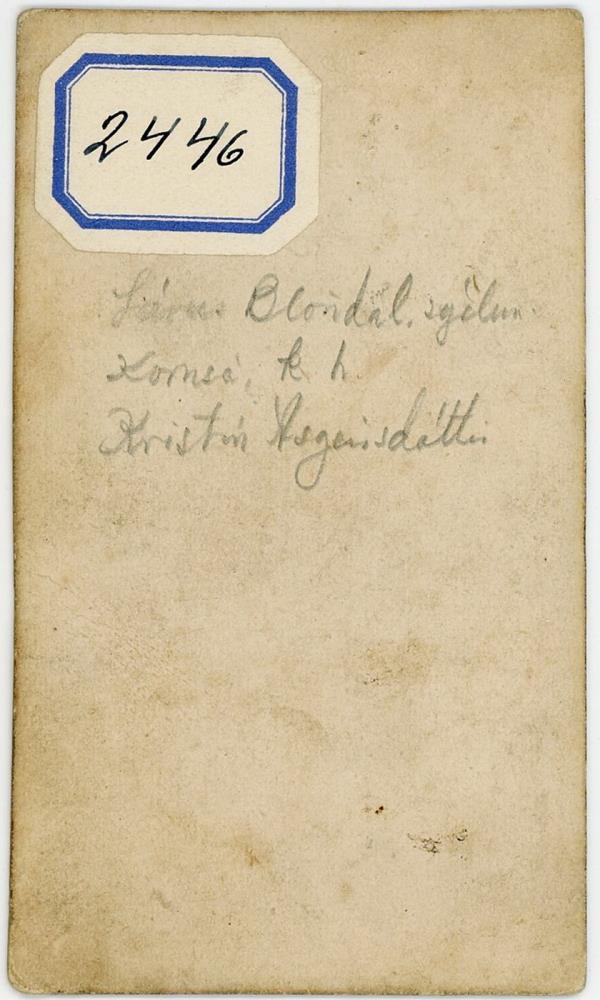 2446
Lárus Blöndal. sýslum.
Kornsá, k h.
Kristín Ásgeirsdóttir